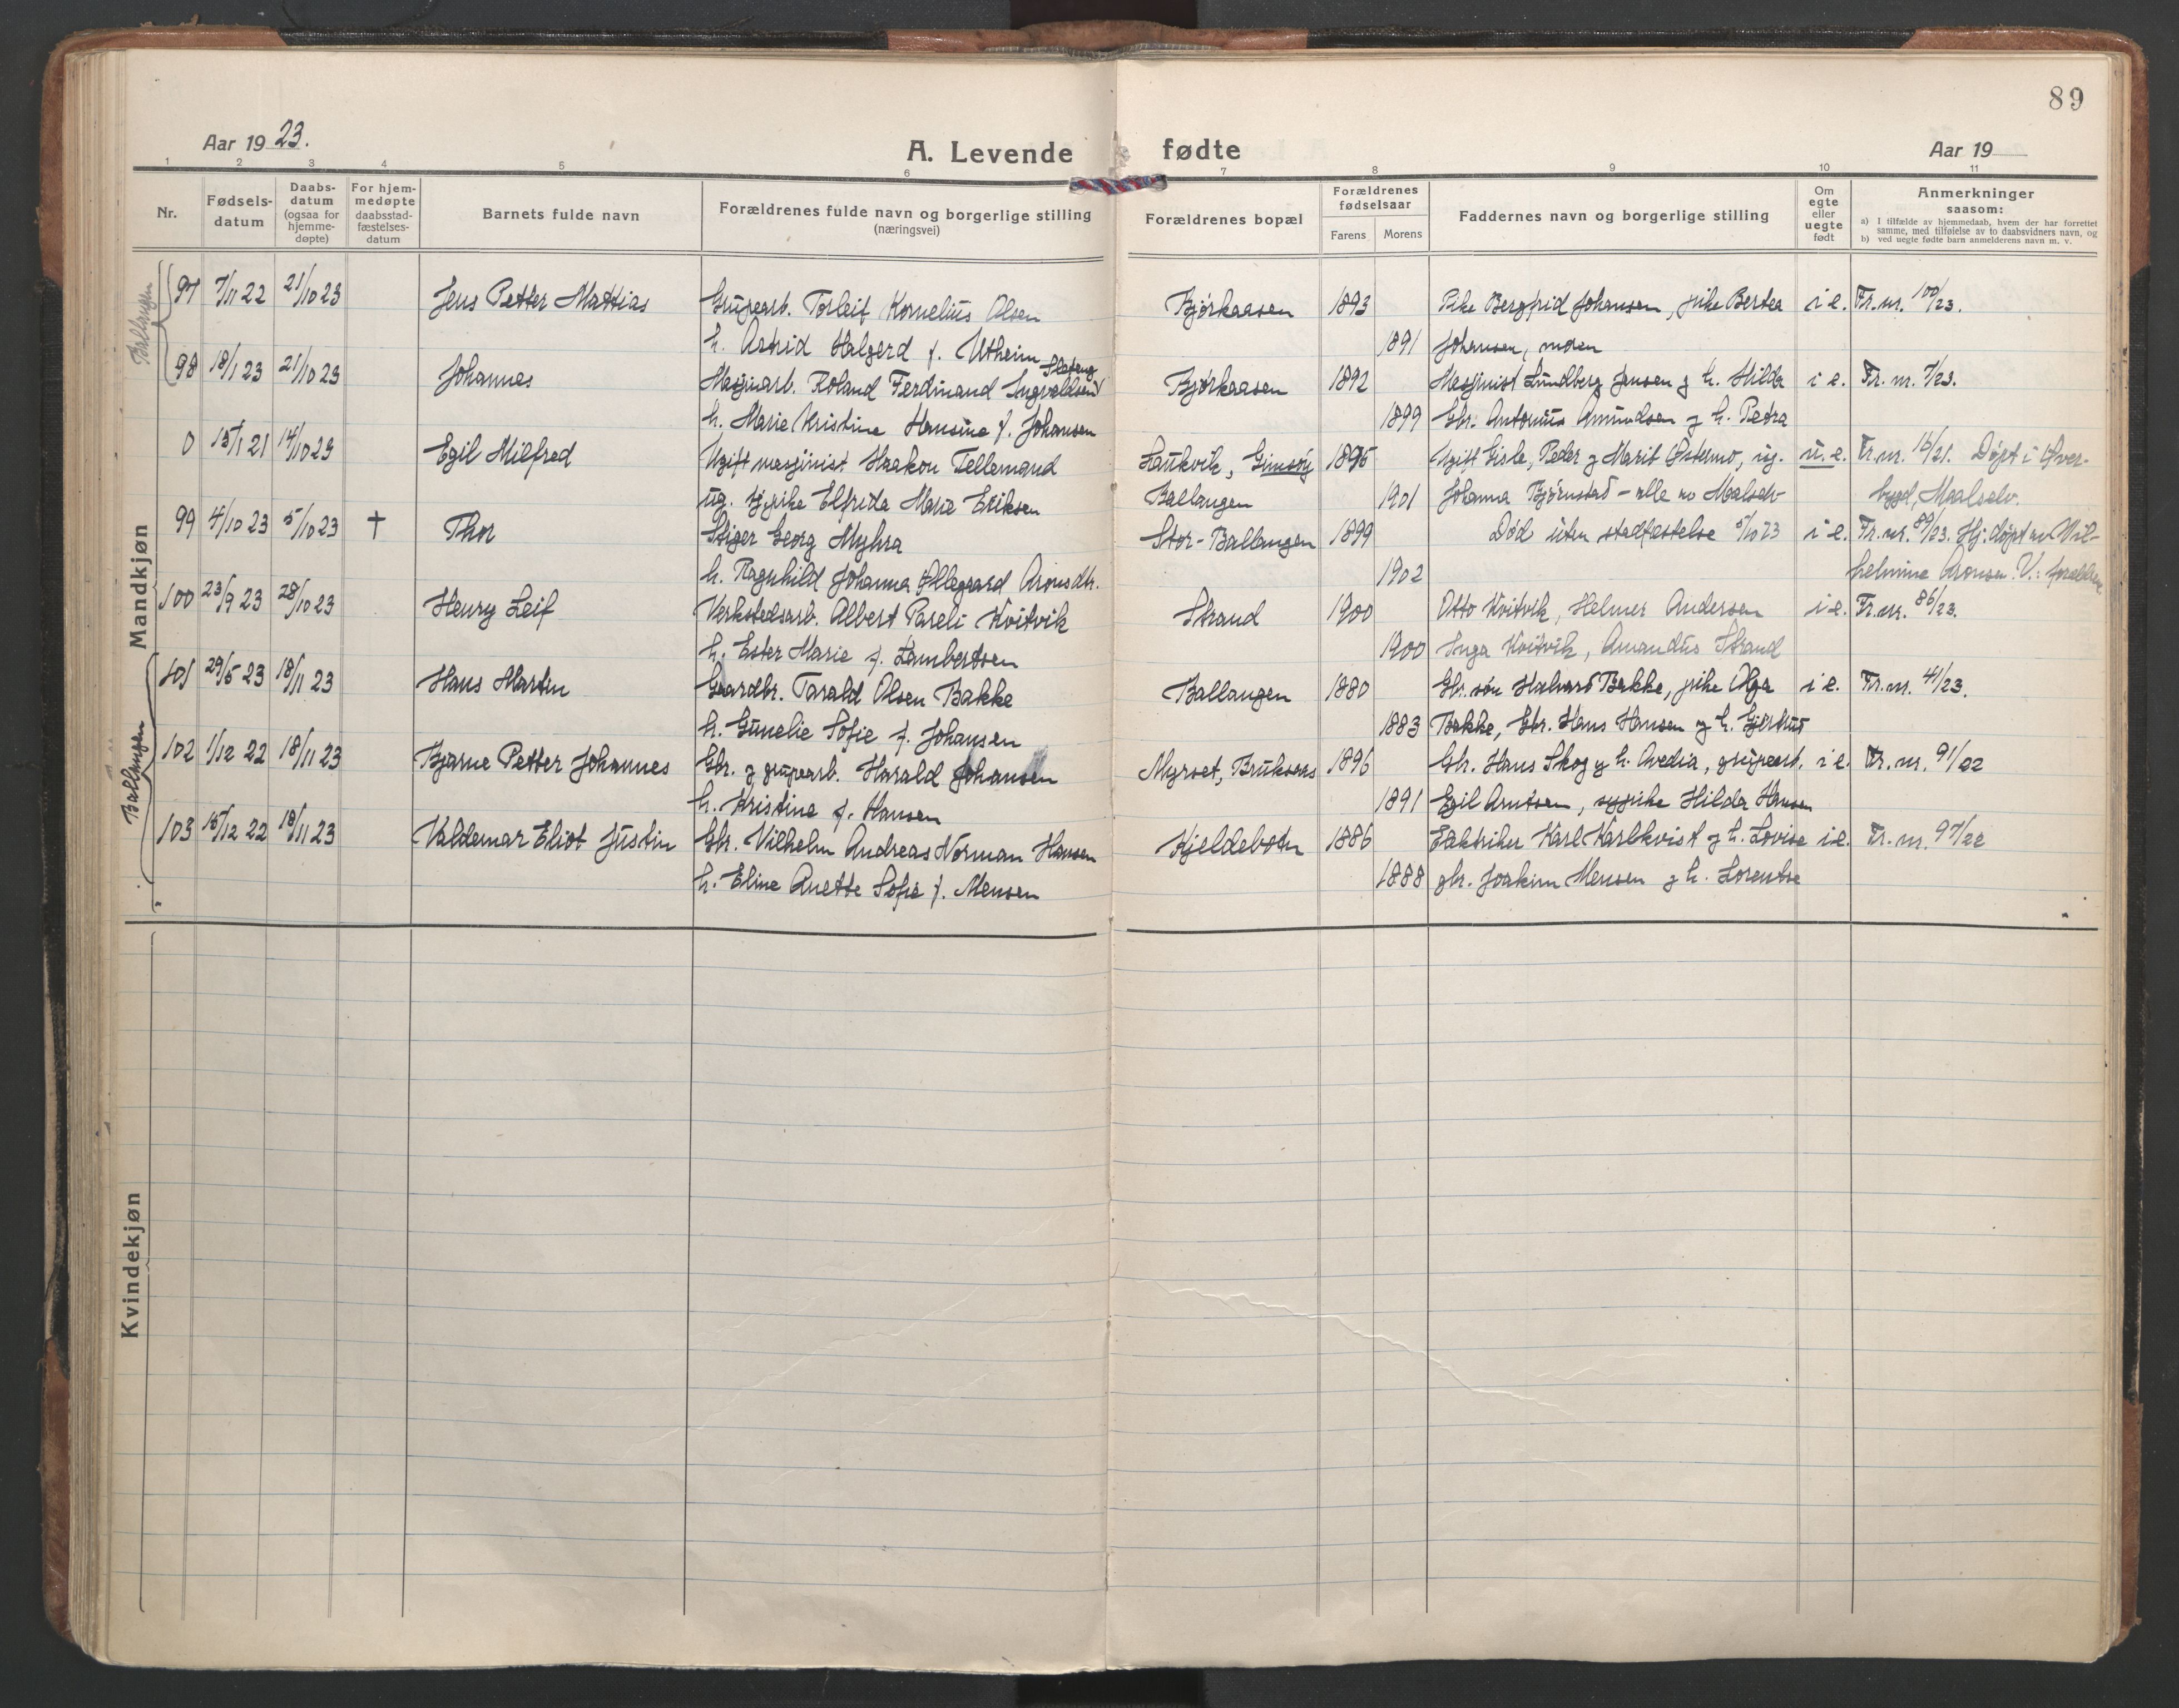 89
Aar 1923.
A. Levende fødte
Aar 19
1 2 3 4 5 6 7 8 9 10 11
Nr.
Fødsels-
datum
Daabs-
datum
(ogsaa for
hjemme-
døpte)
For hjem-
medøpte
daabsstad-
fæstelses-
datum
Barnets fulde navn
Forældrenes fulde navn og borgerlige stilling
(næringsvei)
Forældrenes bopæl
Forældrenes
fødselsaar
Farens Morens
Faddernes navn og borgerlige stilling
Om
egte
eller
uegte
født
Anmerkninger
saasom:
a) I tilfælde av hjemmedaab, hvem der har forrettet
samme, med tilføielse av to daabsvidners navn, og
b) ved uegte fødte barn anmelderens navn m. v.
Mandkjøn
Ballangen
97 7/11 22 21/10 23 Jens Petter Mattias Grupearb. Torleif Kornelius Olsen Bjørkaasen 1893 Pike Bergfrid Johansen, pike Bertea i e. Fr. nr. 100/23.
h. Astrid Halgerd f. Utheim 1891 Johansen, moren
Slotøug
98 18/1 23 21/10 23 Johannes Masjinarb. Roland Ferdinand Ingvaldsen Bjørkaasen 1892 Masjinist Lundberg Jensen g h. Hilda i e. Fr. nr. 7/23.
h. Marie Kristine Hansine f. Johansen 1899 Gbr. Antonius Amundsen g h. Petra
0 15/1 21 14/10 23 Egil Milfred Ugift masjinist Haakon Tellemand Laukvik, Gimsøy 1895 Ugift Gisle, Peder g Marit Østermo, ug. u. e. Fr. nr. 16/21. Døpt i Øver-
ug. sypike Elfrida Marie Eriksen Ballangen 1901 Johanna Bjørnstad - alle av Maalselv bygd, Maalselv.
99 4/10 23 5/10 23 † Thor Stiger Georg Myhra Stor-Ballangen 1899 Død uten stadfæstelse 5/10 23 i e. Fr. nr. 89/23. Hj. døpt av Vil-
h. Ragnhild Johanna Ollegaard Aronsdtr. 1902 helmine Aronsen. V.: forældrene
100 23/9 23 28/10 23 Henry Leif Verkstedsarb. Albert Pareli Kvitvik Strand 1900 Otto Kvitvik, Helmer Andersen i e. Fr. nr. 86/23.
h. Ester Marie f. Lambertsen 1900 Inga Kvitvik, Amandus Strand
Ballangen
101 29/5 23 18/11 23 Hans Martin Gaardbr. Tarald Olsen Bakke Ballangen 1880 Gbr. søn Halvard Bakke, pike Olga i e. Fr. nr. 41/23.
h. Gunelie Sofie f. Johansen 1883 Bakke, Gbr. Hans Hansen g h. Gjertrud
102 1/12 22 18/11 23 Bjarne Petter Johannes Gbr. g grupearb. Harald Johansen Myrset, Bruksaas 1896 Gbr. Hans Skog g h. Avedia, grupearb. i e. Fr. nr. 91/22
h. Kristine f. Hansen 1891 Egil Arntsen, sypike Hilda Hansen
103 15/12 22 18/11 23 Valdemar Eliot Justin Gbr. Vilhelm Andreas Norman Hansen Kjeldebotn 1886 Elektriker Karl Karlkvist g h. Lovise i e. Fr. nr. 97/22
h. Eline Anette Sofie f. Mensen 1888 gbr. Joakim Mensen g h. Lorentse
Kvindekjøn